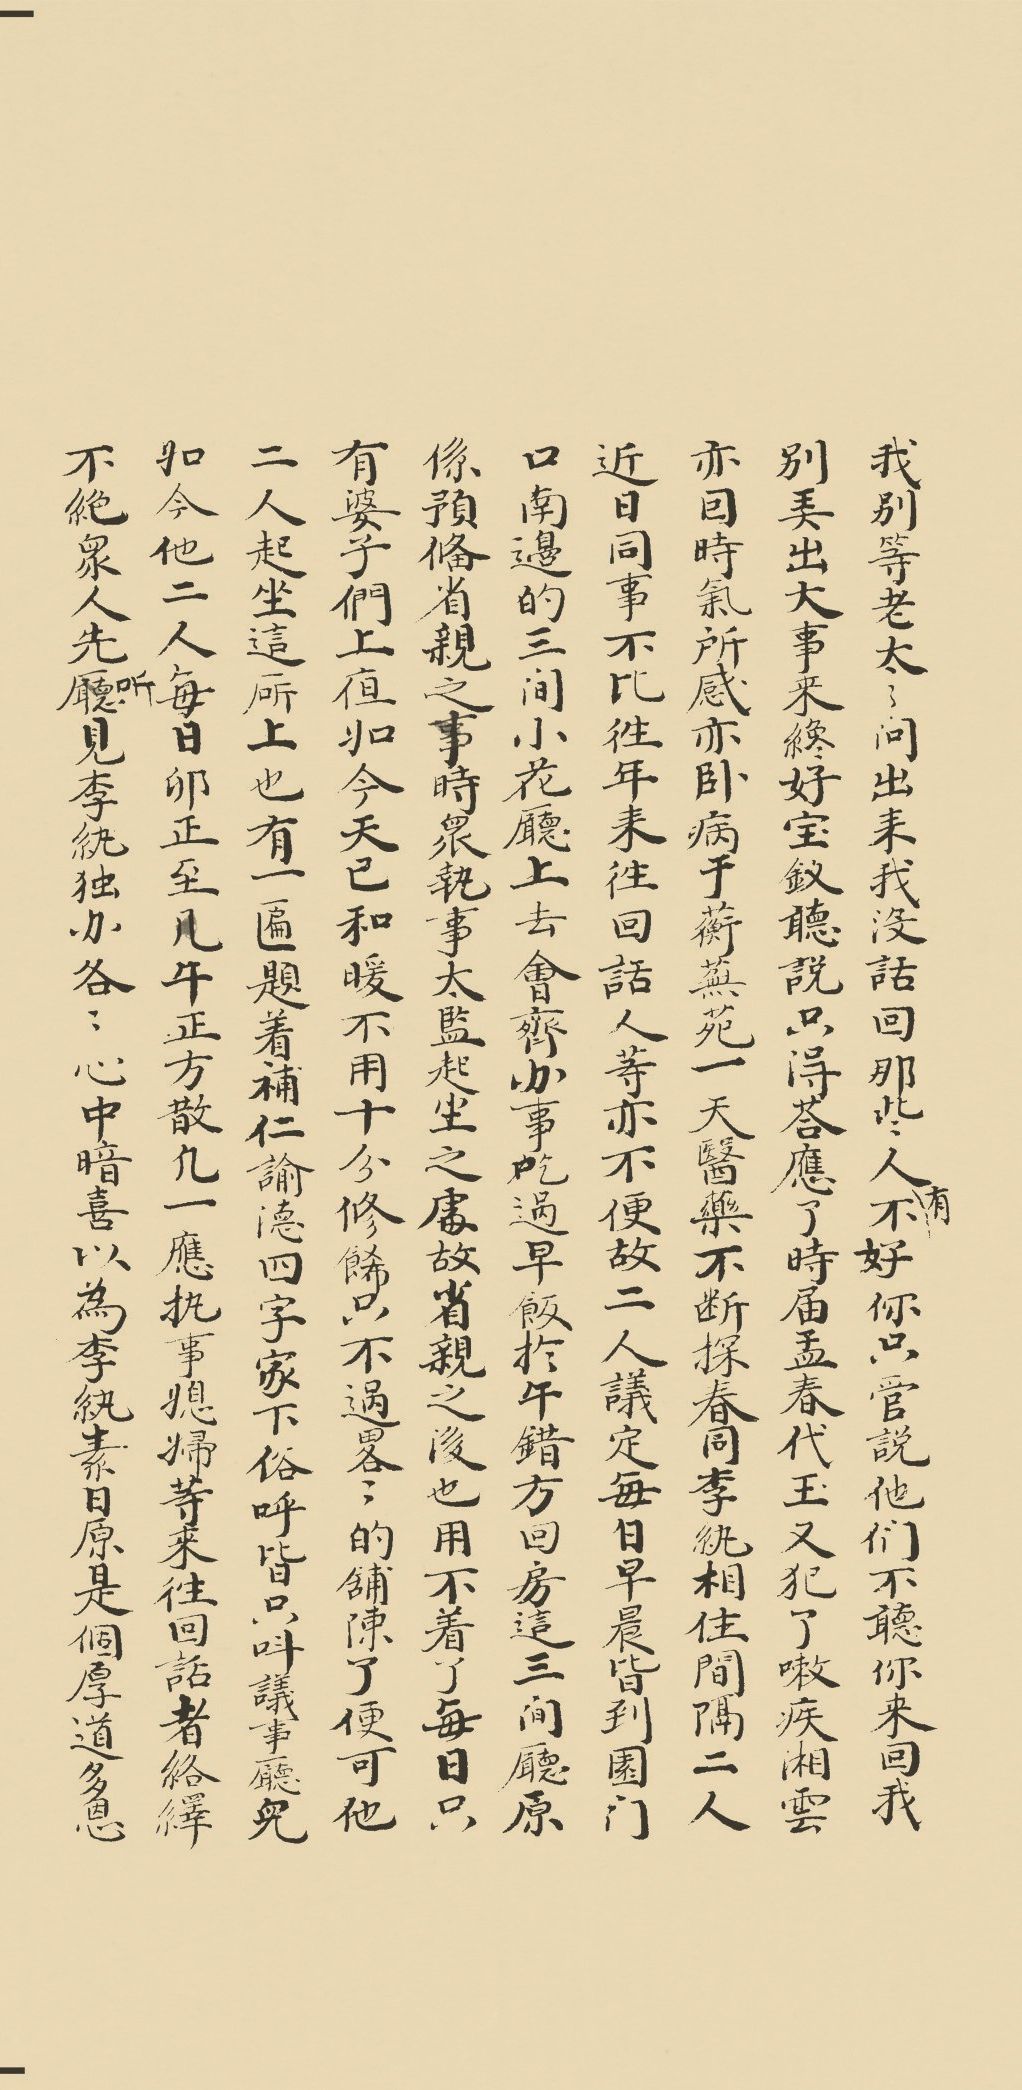 我别等老太〻问出来我没話回那些人有不好你只管説他们不聽你来回我
别弄出大事来纔好宝釵聽説只得荅應了時届孟春代玉又犯了嗽疾湘雲
亦因時氣所感亦卧病于蘅蕪苑一天醫藥不断探春同李紈相住間隔二人
近日同事不比徃年来徃回話人等亦不便故二人議定每日早晨皆到園门
口南邊的三间小花廳上去會齊办事吃過早飯扵午錯方回房這三间廳原
係預俻省親之事時衆執事太監起坐之處故省親之後也用不着了每日只
有婆子們上夜如今天已和暖不用十分修餙只不過畧〻的舖陳了便可他
二人起坐這㕔上也有一匾題着補仁諭德四字家下俗呼皆只呌議事廳兒
如今他二人每日卯正至凡午正方散凢一應执事媳婦等来徃回話者絡繹
不絶衆人先廳听見李紈独办各〻心中暗喜以為李紈素日原是個厚道多恩